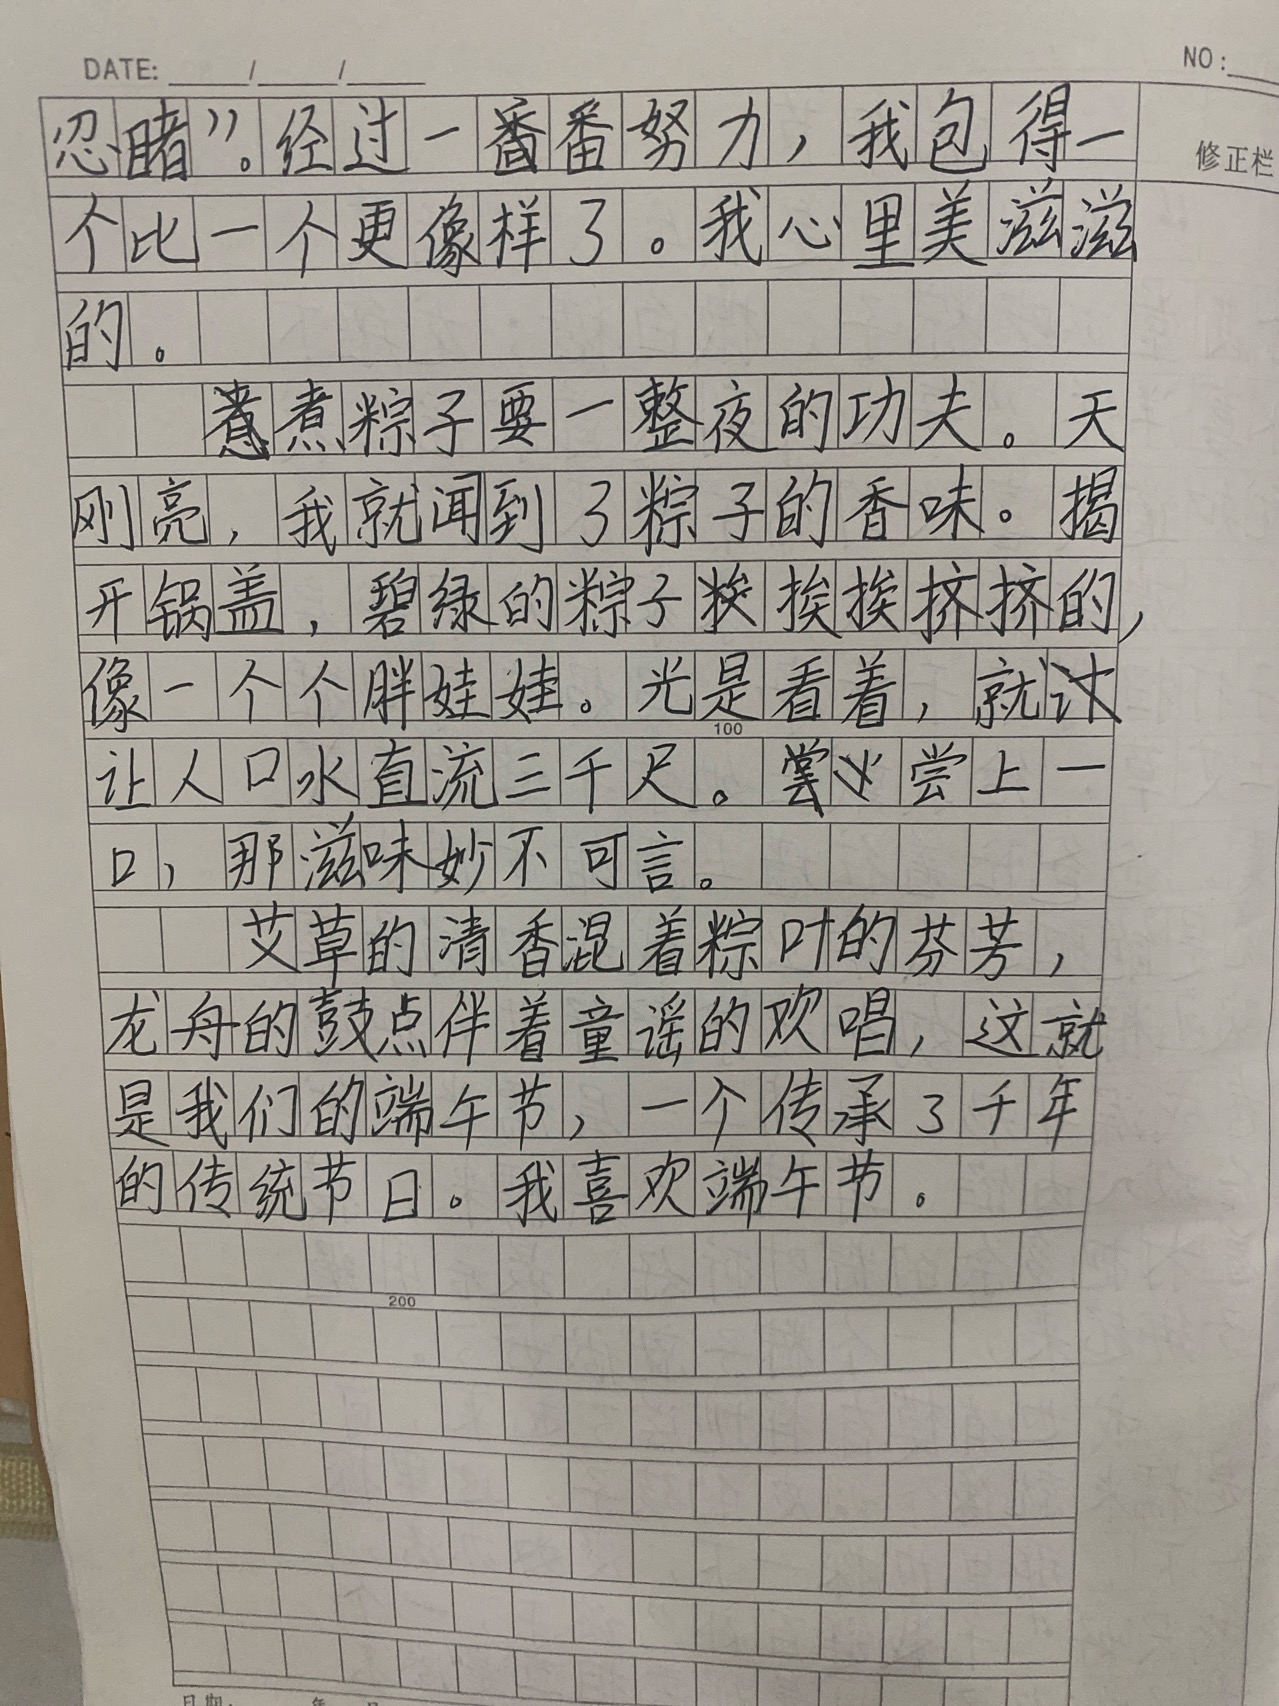 DATE: ____/____/____
NO:__
修正栏
忍睹”。经过一番番努力，我包得一
个比一个更像样了。我心里美滋滋
的。
煮粽子要一整夜的功夫。天
刚亮，我就闻到了粽子的香味。揭
开锅盖，碧绿的粽子挨挨挤挤的，
像一个个胖娃娃。光是看着，就
100
让人口水直流三千尺。尝上一
口，那滋味妙不可言。
艾草的清香混着粽叶的芬芳，
龙舟的鼓点伴着童谣的欢唱，这就
是我们的端午节，一个传承了千年
的传统节日。我喜欢端午节。
200
日期： 年 月